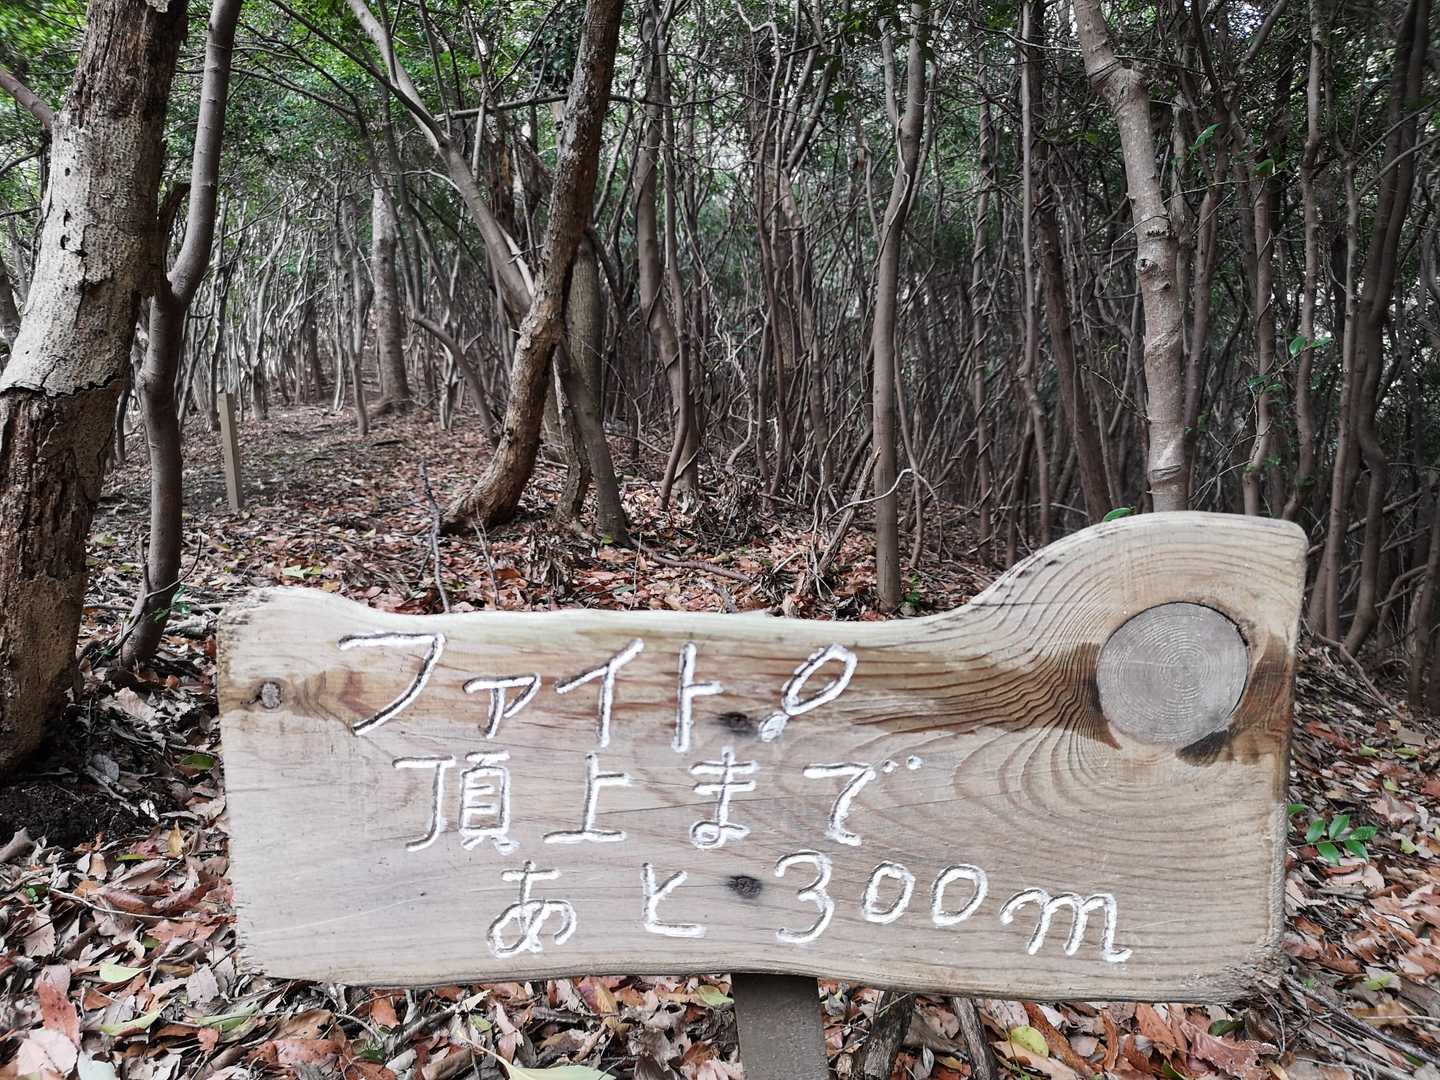 ファイト!
頂上まで
あと300m